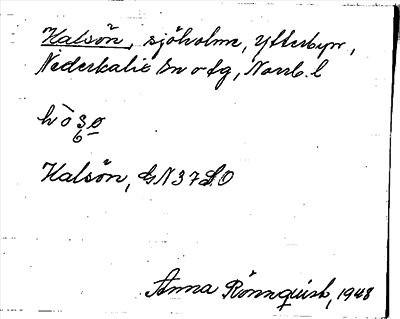 Halsön, sjöholme, Ytterbyn,
Nederkalix sn o tg, Norrb. l
Halsön, GN37SO
Anna Rönnquist, 1948